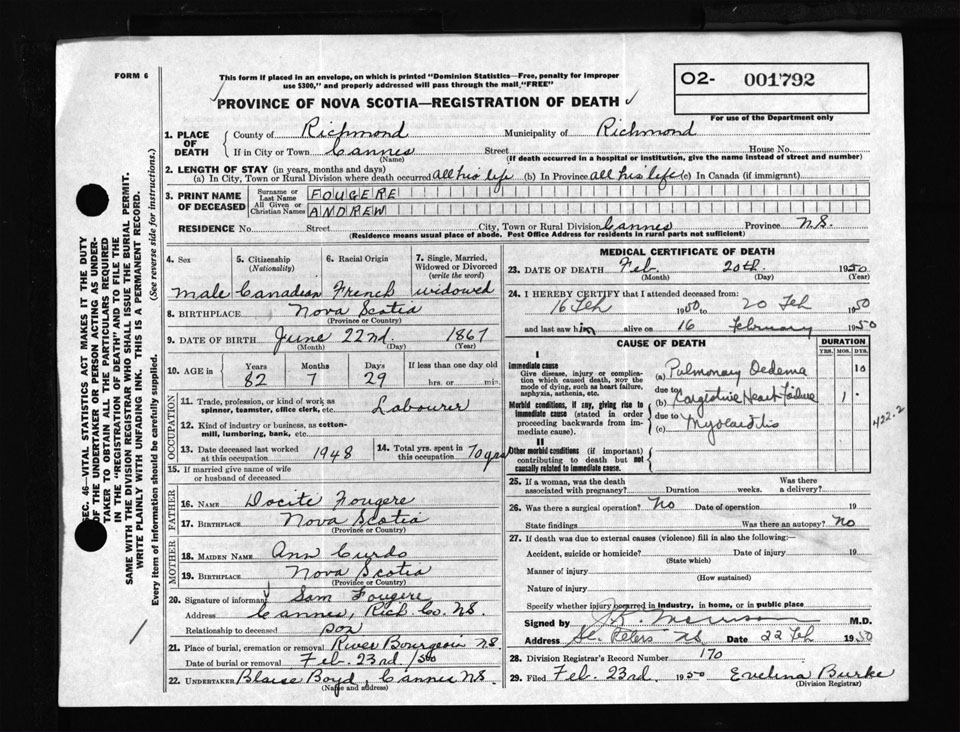 FORM 6
This form if placed in an envelope, on which is printed "Dominion Statistics—Free, penalty for improper
use $300," and properly addressed will pass through the mail "FREE"
PROVINCE OF NOVA SCOTIA—REGISTRATION OF DEATH
O2- 001792
For use of the Department only
SEC. 46—VITAL STATISTICS ACT MAKES IT THE DUTY
OF THE UNDERTAKER OR PERSON ACTING AS UNDER-
TAKER TO OBTAIN ALL THE PARTICULARS REQUIRED
IN THE "REGISTRATION OF DEATH" AND TO FILE THE
SAME WITH THE DIVISION REGISTRAR WHO SHALL ISSUE THE BURIAL PERMIT.
WRITE PLAINLY WITH UNFADING INK. THIS IS A PERMANENT RECORD.
Every item of information should be carefully supplied. (See reverse side for instructions.)
1. PLACE OF DEATH
County of Richmond Municipality of Richmond
If in City or Town Cannes Street House No.
(Name) (If death occurred in a hospital or institution, give the name instead of street and number)
2. LENGTH OF STAY (in years, months and days)
(a) In City, Town or Rural Division where death occurred all his life (b) In Province all his life (c) In Canada (if immigrant)
3. PRINT NAME OF DECEASED
Surname or Last Name FOUGERE
All Given or Christian Names ANDREW
RESIDENCE No. Street City, Town or Rural Division Cannes Province N.S.
(Residence means usual place of abode. Post Office Address for residents in rural parts not sufficient)
4. Sex 5. Citizenship (Nationality) 6. Racial Origin 7. Single, Married, Widowed or Divorced (write the word)
male Canadian French widowed
8. BIRTHPLACE Nova Scotia
(Province or Country)
9. DATE OF BIRTH June 22nd 1867
(Month) (Day) (Year)
10. AGE in Years Months Days If less than one day old
82 7 29 hrs. or min.
OCCUPATION
11. Trade, profession, or kind of work as
spinner, teamster, office clerk, etc. Labourer
12. Kind of industry or business, as cotton-
mill, lumbering, bank, etc.
13. Date deceased last worked at this occupation 1948 14. Total yrs. spent in this occupation 70 yrs
15. If married give name of wife
or husband of deceased
FATHER
16. NAME Docite Fougere
17. BIRTHPLACE Nova Scotia
(Province or Country)
MOTHER
18. MAIDEN NAME Ann Curdo
19. BIRTHPLACE Nova Scotia
(Province or Country)
20. Signature of informant Sam Fougere
Address Cannes, Rich. Co. N.S.
Relationship to deceased son
21. Place of burial, cremation or removal River Bourgeois N.S.
Date of burial or removal Feb. 23rd /50
22. UNDERTAKER Blaise Boyd, Cannes N.S.
(Name and address)
MEDICAL CERTIFICATE OF DEATH
23. DATE OF DEATH Feb. 20th 1950
(Month) (Day) (Year)
24. I HEREBY CERTIFY that I attended deceased from:
16 Feb 1950 to 20 Feb 1950
and last saw him alive on 16 February 1950
CAUSE OF DEATH DURATION
YRS. MOS. DYS.
I
Immediate cause
Give disease, injury or complica-
tion which caused death, NOT the
mode of dying, such as heart failure,
asphyxia, asthenia, etc.
(a) Pulmonary Oedema 10
due to
Morbid conditions, if any, giving rise to
immediate cause (stated in order
proceeding backwards from im-
mediate cause).
(b) Congestive Heart Failure 1
due to
(c) Myocarditis
422.2
II
Other morbid conditions (if important)
contributing to death but not
causally related to immediate cause.
25. If a woman, was the death Was there
associated with pregnancy? Duration weeks. a delivery?
26. Was there a surgical operation? No Date of operation 19
State findings Was there an autopsy? No
27. If death was due to external causes (violence) fill in also the following:—
Accident, suicide or homicide? Date of injury 19
(State which)
Manner of injury
(How sustained)
Nature of injury
Specify whether injury occurred in industry, in home, or in public place
Signed by M.D.
Address St. Peters N.S. Date 22 Feb 1950
28. Division Registrar's Record Number 170
29. Filed Feb. 23rd. 1950 Evelina Burke
(Division Registrar)